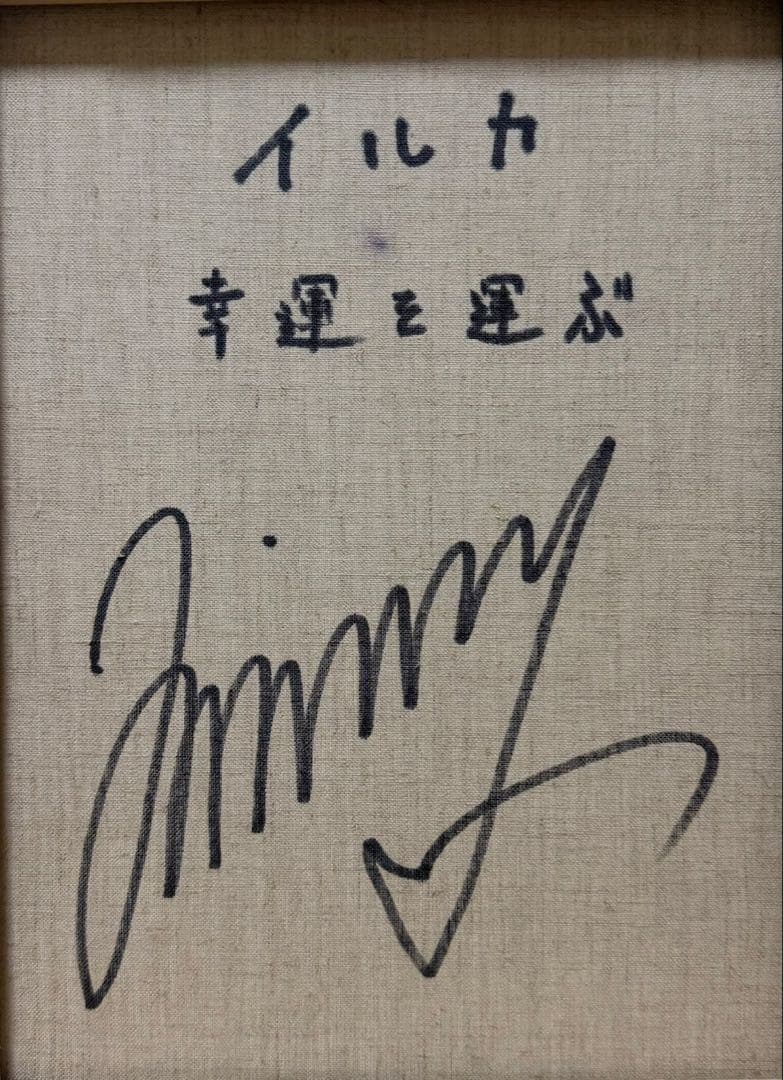 イルカ
幸運を運ぶ
Jimmy